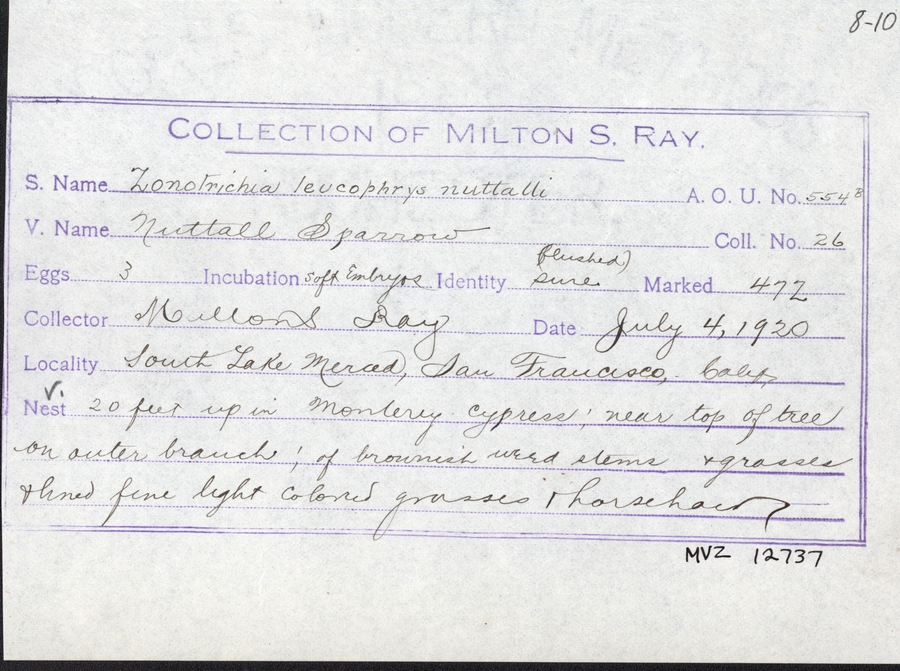 8-10
COLLECTION OF MILTON S. RAY.
S. Name Zonotrichia leucophrys nuttalli A. O. U. No. 554B
V. Name Nuttall Sparrow Coll. No. 26
(flushed)
Eggs 3 Incubation soft Embryos Identity sure Marked 472
Collector Milton S Ray Date July 4, 1920
Locality South Lake Merced, San Francisco, Calif.
v.
Nest 20 feet up in Monterey cypress; near top of tree
on outer branch; of brownish weed stems & grasses
& lined fine light colored grasses & horsehair
MVZ 12737